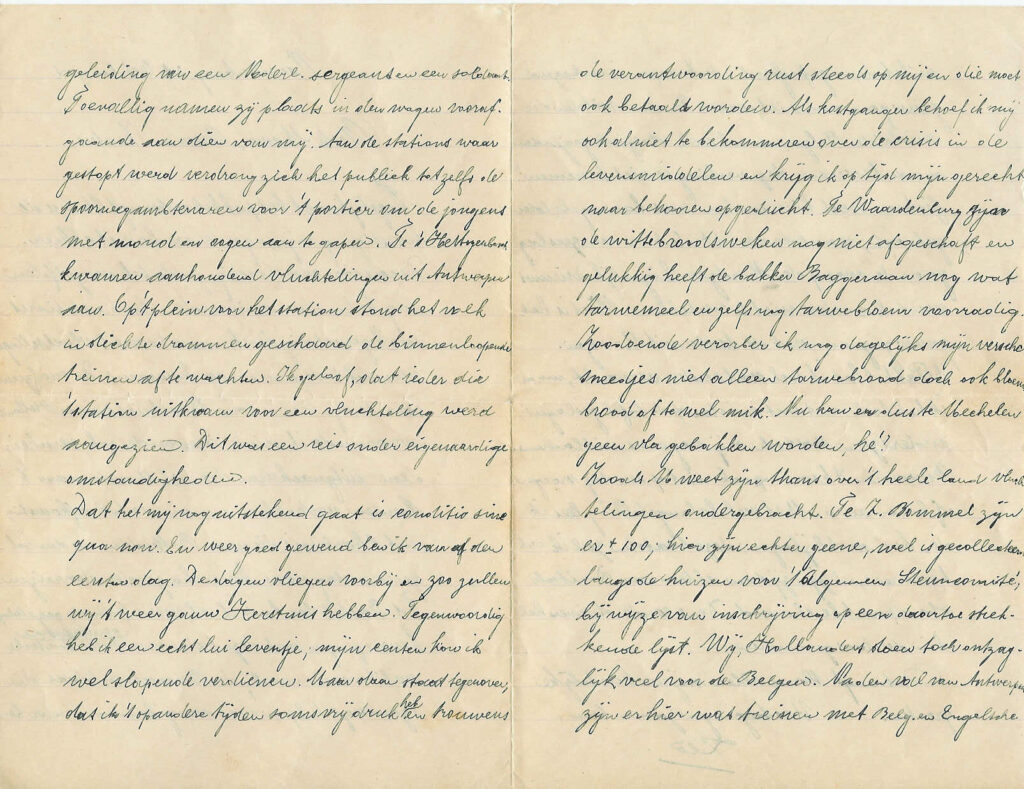 geleiding van een Nederl. sergeant en een soldaat.
Toevallig namen zij plaats in den wagen vooraf-
gaande aan dien van mij. Aan de stations waar
gestopt werd verdrong zich het publiek tot zelfs de
spoorwegambtenaren voor 't portier om de jongens
met mond en oogen aan te gapen. Te 's Hertogenbosch
kwamen aanhoudend vluchtelingen uit Antwerpen
aan. Op 't plein van het station stond het volk
in dichte drommen geschaard de binnenloopende
treinen af te wachten. Ik geloof, dat ieder die
't station uitkwam voor een vluchteling werd
aangezien. Dit was een reis onder eigenaardige
omstandigheden.
Dat het mij nog uitstekend gaat is conditio sine
qua non. En weer goed gewend ben ik van af den
eersten dag. De dagen vliegen voorbij en zoo zullen
wij 't weer gauw Kerstmis hebben. Tegenwoordig
heb ik een echt lui leventje; mijn centen kan ik
wel slapende verdienen. Maar daar staat tegenover,
dat ik 't op andere tijden soms vrij druk heb en trouwens
de verantwoording rust steeds op mij en die moet
ook betaald worden. Als kostganger behoef ik mij
ook al niet te bekommeren over de crisis in de
levensmiddelen en krijg ik op tijd mijn gerecht
naar behooren opgedischt. Te Waardenburg zijn
de wittebroodsweken nog niet afgeschaft en
gelukkig heeft de bakker Baggerman nog wat
tarwemeel en zelfs nog tarwebloem voorradig.
Zoodoende verorber ik nog dagelijks mijn versche
sneedjes niet alleen tarwebrood doch ook bloem
brood of te wel mik. Nu kan er dus te Mechelen
geen vla gebakken worden, hè?
Zooals U weet zijn thans over 't heele land vluch
telingen ondergebracht. Te Z. Bommel zijn
er ± 100; hier zijn echter geene, wel is gecollecteerd
langs de huizen voor 't Algemeen Steuncomité,
bij wijze van inschrijving op een daartoe strek-
kende lijst. Wij, Hollanders doen toch ontzag-
lijk veel voor de Belgen. Na den val van Antwerpen
zijn er hier wat treinen met Belg. en Engelsche